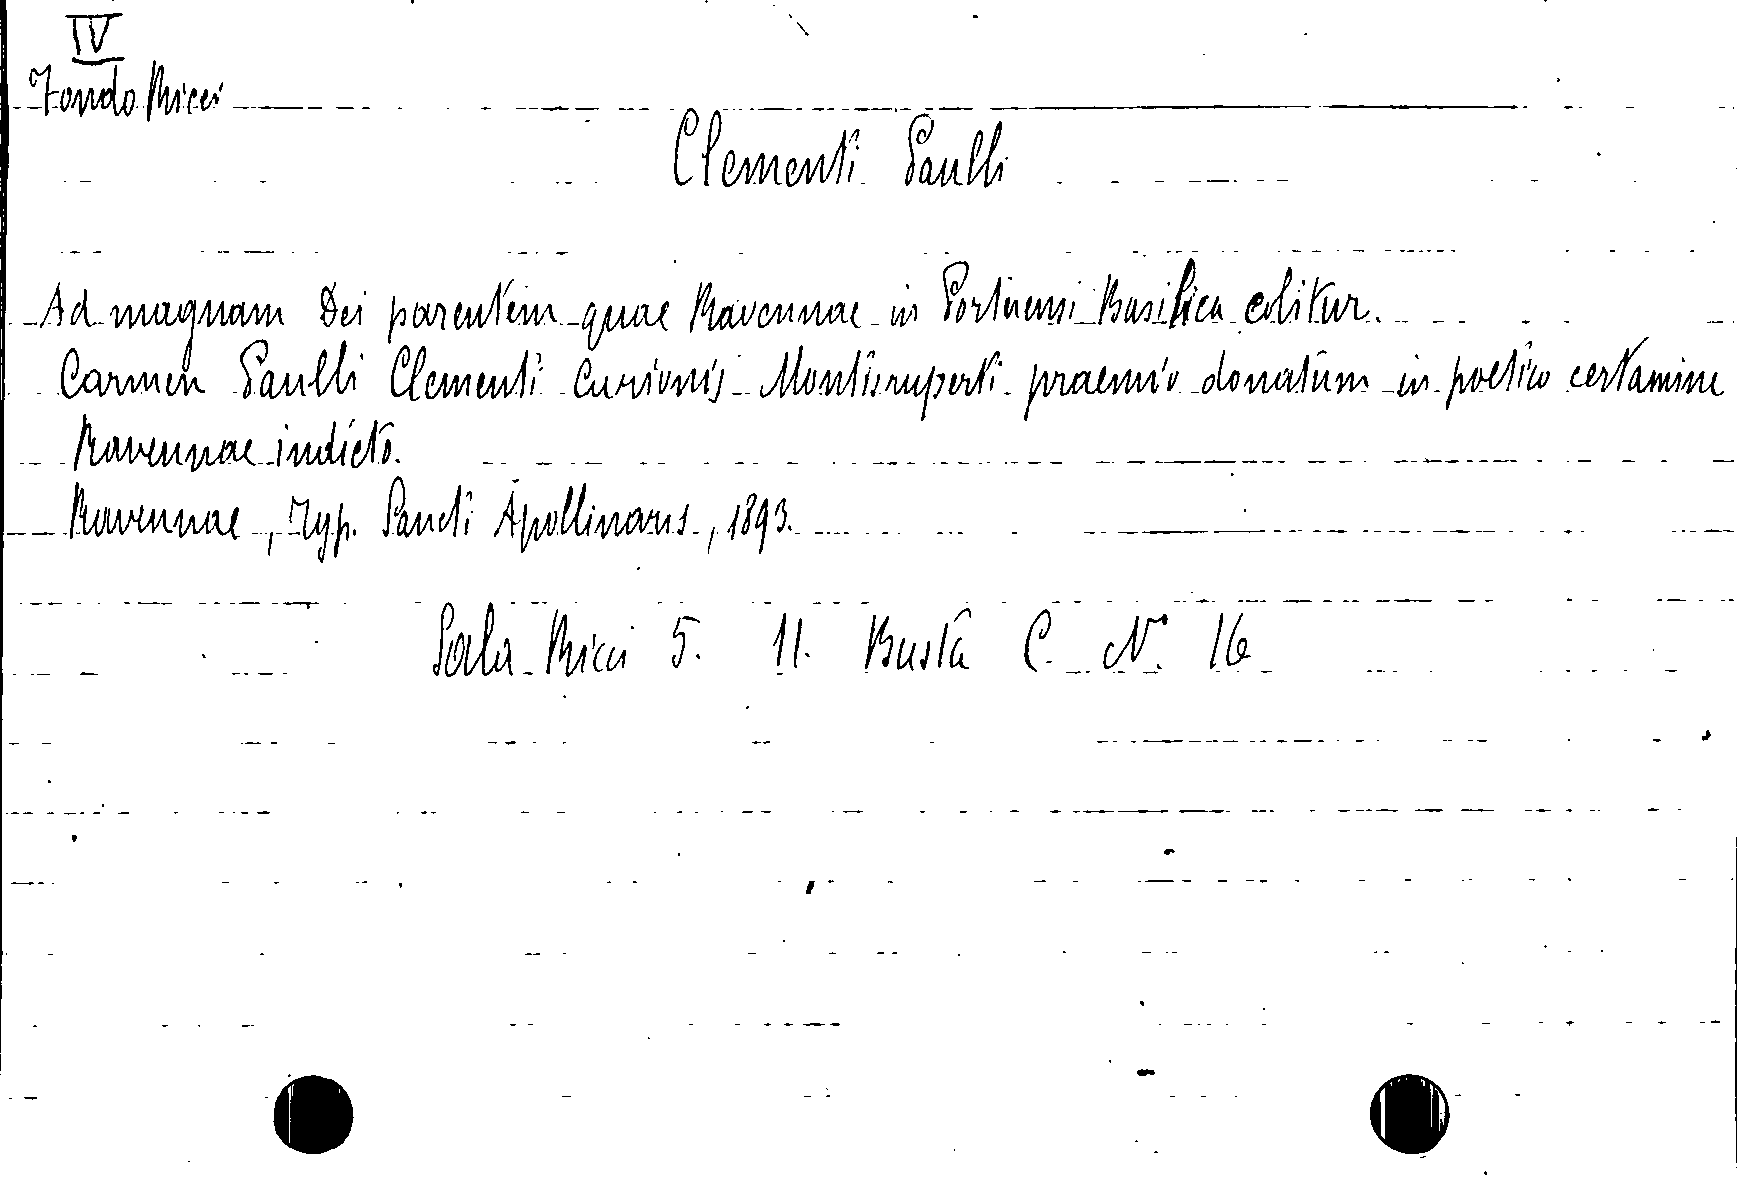 IV
Fondo Ricci
Clementi Paulli
Ad magnam Dei parentem quae Ravennae in Portuensi Basilica colitur.
Carmen Paulli Clementi Curionis Montisruperti praemio donatum in poetico certamine
Ravennae indicto.
Ravennae, Typ. Sancti Apollinaris, 1893.
Sala Ricci 5. 11. Busta C. N. 16